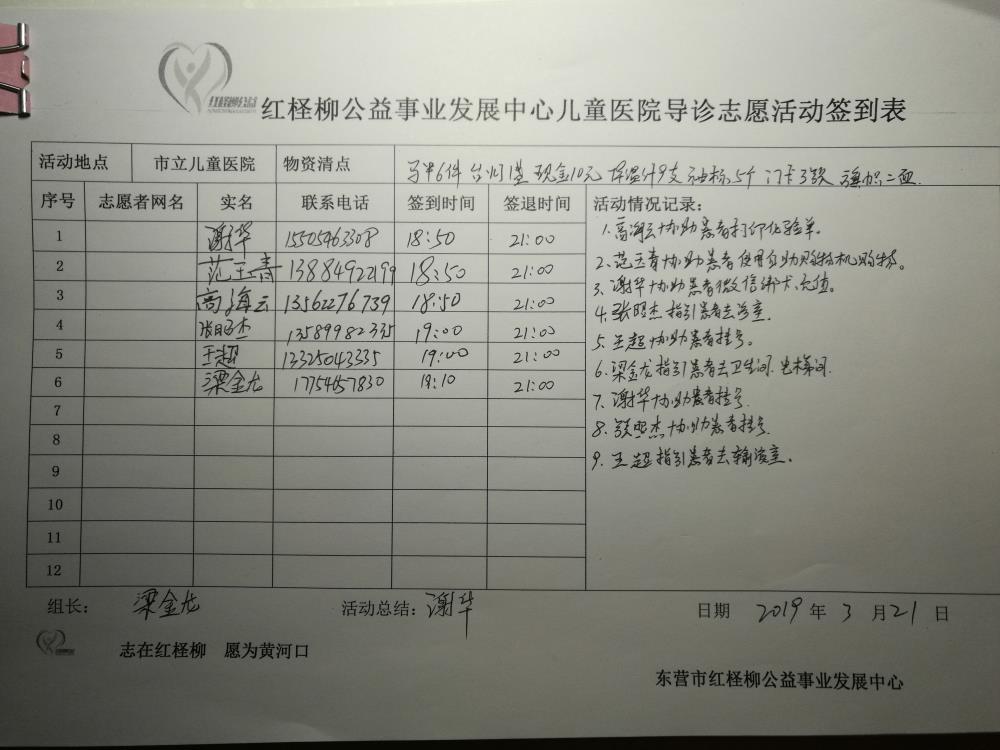 红柽柳公益
红柽柳公益事业发展中心儿童医院导诊志愿活动签到表
活动地点 市立儿童医院 物资清点 马甲6件 台灯1盏 现金10元 体温计9支 油标5个 门卡3张 旗帜二面
序号 志愿者网名 实名 联系电话 签到时间 签退时间 活动情况记录:
1 谢华 15505463308 18:50 21:00
2 范玉青 13884922199 18:50 21:00
3 高海云 13562276739 18:50 21:00
4 张照杰 13589982335 19:00 21:00
5 王超 13325043335 19:00 21:00
6 梁金龙 17754657830 19:10 21:00
7
8
9
10
11
12
1.高海云协助患者打印化验单。
2.范玉青协助患者使用自助购物机购物。
3.谢华协助患者微信绑卡、充值。
4.张照杰指引患者去诊室.
5.王超协助患者挂号。
6.梁金龙指引患者去卫生间.电梯间.
7.谢华协助患者挂号.
8.张照杰协助患者挂号.
9.王超指引患者去输液室.
组长: 梁金龙 活动总结: 谢华 日期 2019 年 3 月 21 日
志在红柽柳 愿为黄河口
东营市红柽柳公益事业发展中心